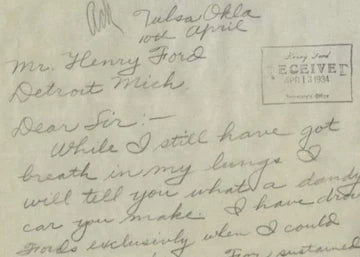 Tulsa Okla
10th April
Mr. Henry Ford
Detroit Mich.
Henry Ford
RECEIVED
APR 13 1934
Secretary's Office
Dear Sir:-
While I still have got
breath in my lungs I
will tell you what a dandy
car you make. I have drov
Fords exclusivly when I could
For sustained